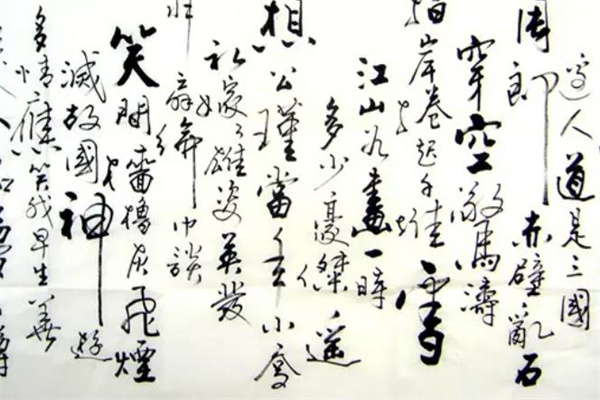 邊人道是三國
周郎赤壁亂石
穿空驚濤
拍岸卷起千堆雪
江山如畫一時
多少豪傑遥
想公瑾當年小喬
初嫁了雄姿英發
羽扇綸巾談
笑間檣櫓灰飛煙
滅故國神遊
多情應笑我早生華